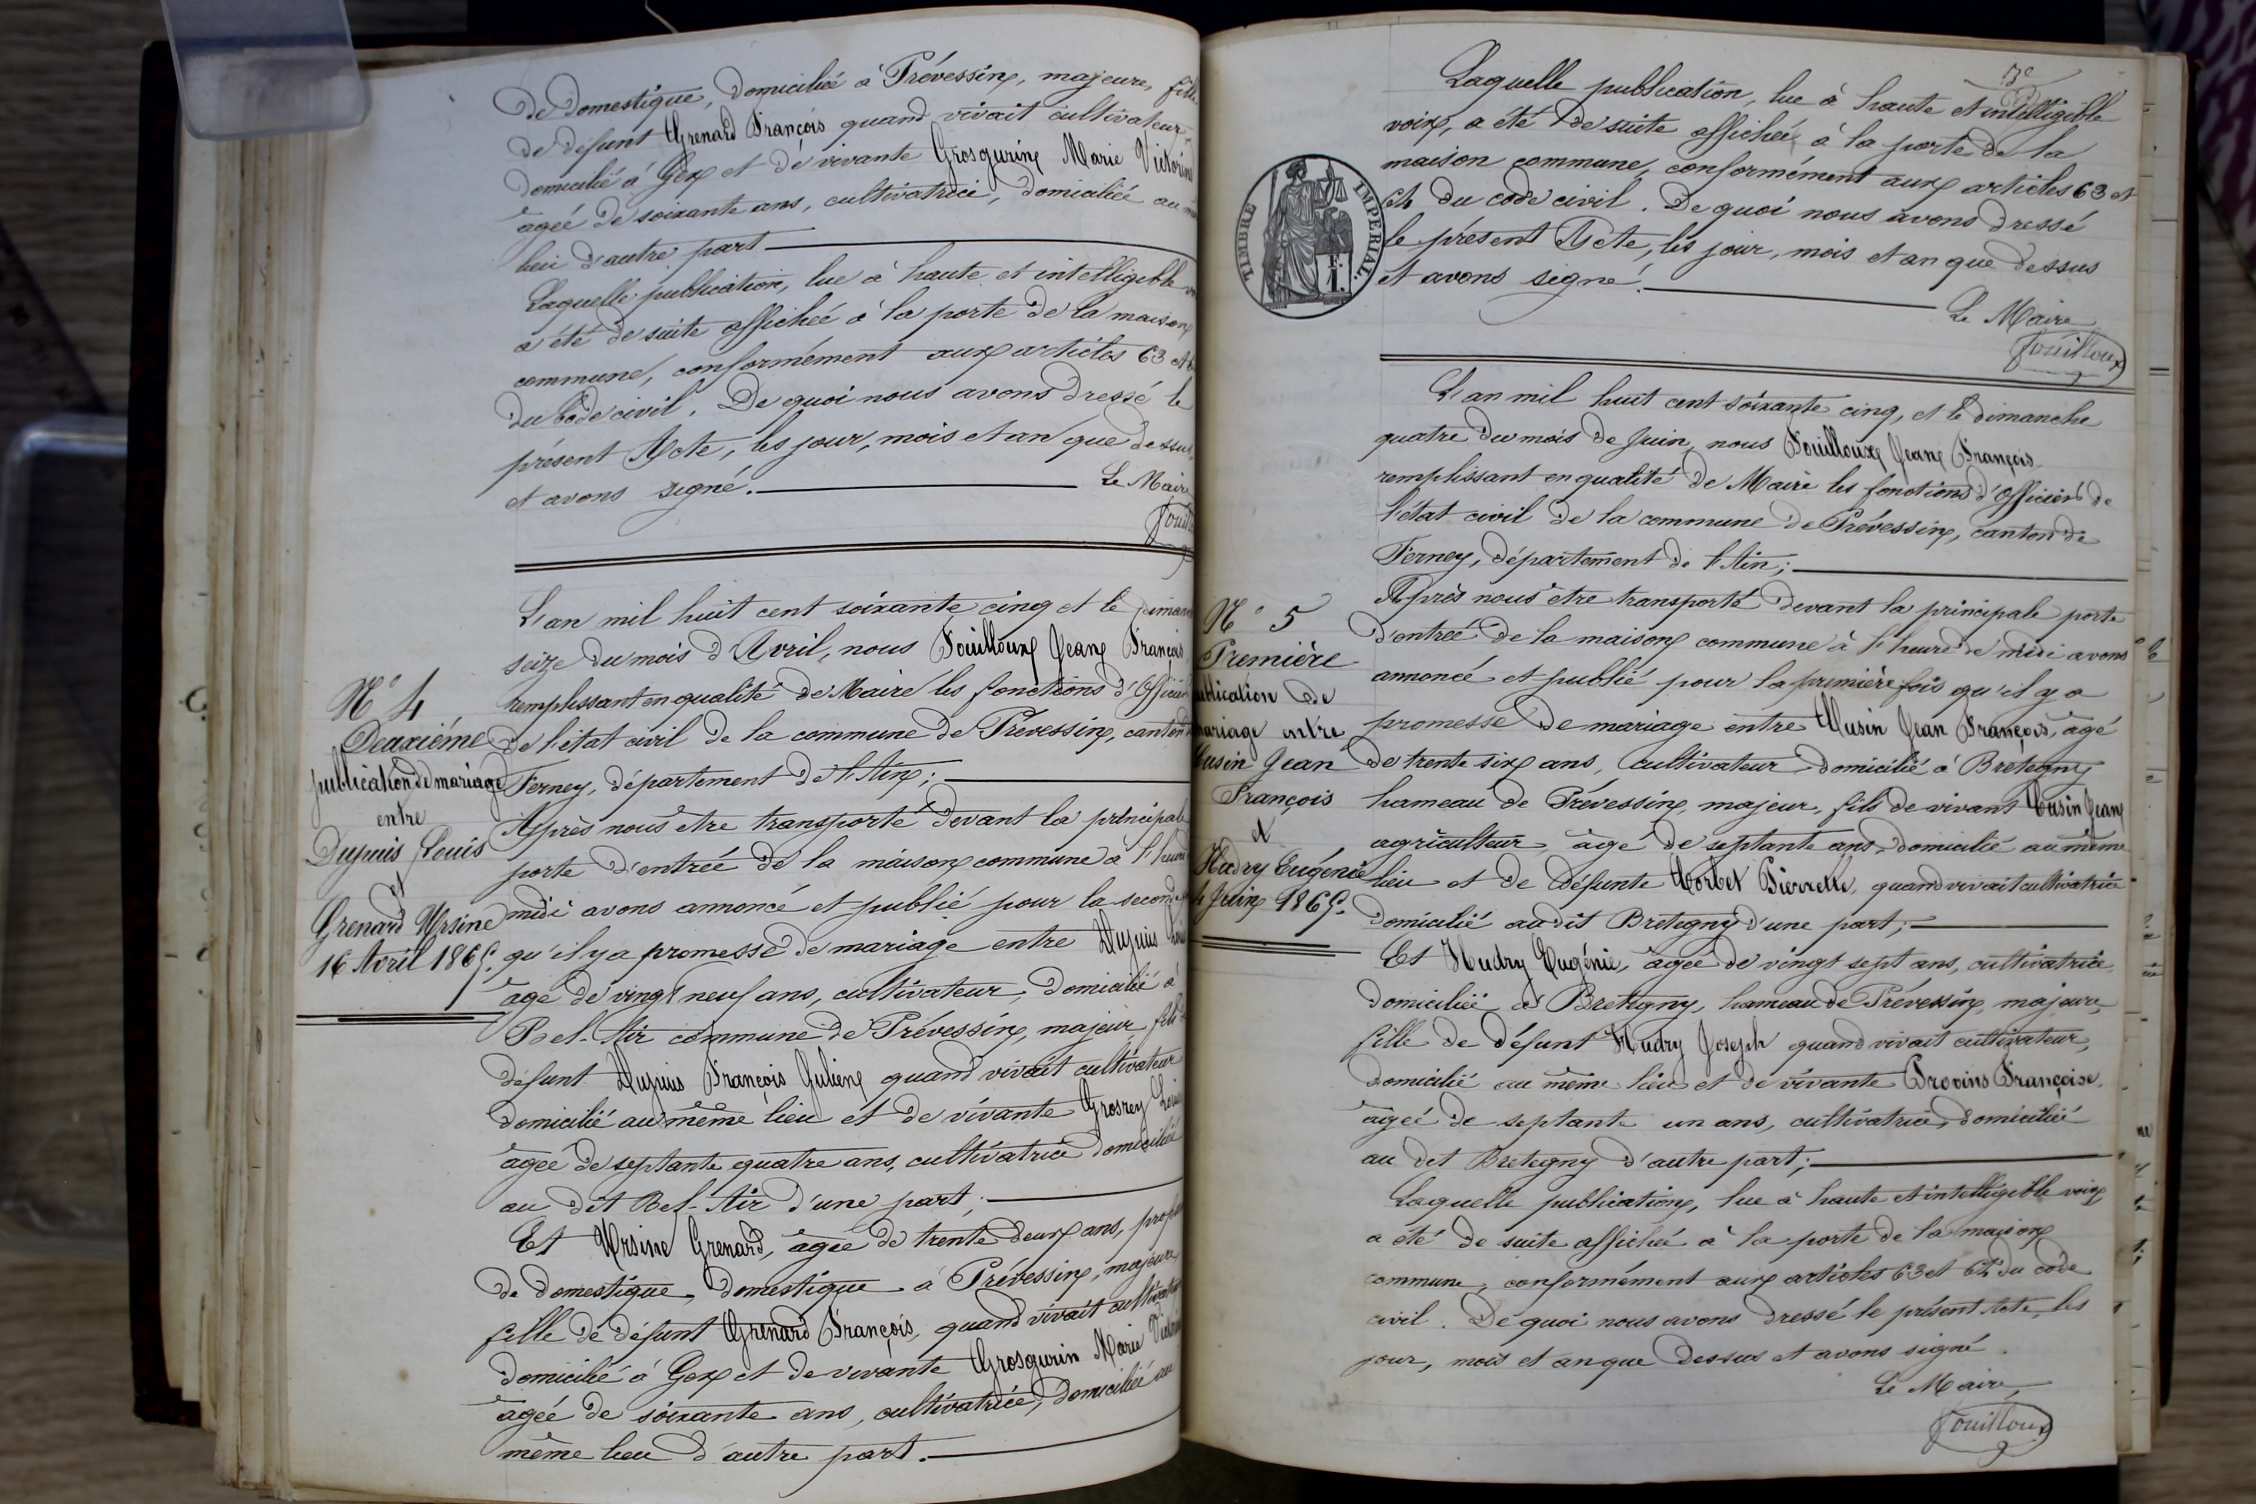 de domestique, domiciliée à Prévessin, majeure, fille
de défunt Grenard François quand vivait cultivateur
domicilié à Gex et de vivante Grosgurin Marie Victorine
âgée de soixante ans, cultivatrice, domiciliée au
lieu d'autre part
Laquelle publication, lue à haute et intelligible
a été de suite affichée à la porte de la maison
commune, conformément aux articles 63 et
du Code civil. De quoi nous avons dressé le
présent Acte, les jour, mois et an que dessus
et avons signé. Le Maire
Fouilloux
N° 4
Deuxième
publication de mariage
entre
Dupuis Louis
et
Grenard Ursine
16 Avril 1865.
L'an mil huit cent soixante cinq et le dimanche
seize du mois d'Avril, nous Fouilloux Jean François
remplissant en qualité de Maire les fonctions d'Officier
de l'état civil de la commune de Prévessin, canton de
Ferney, département de l'Ain;
Après nous être transporté devant la principale
porte d'entrée de la maison commune à l'heure
midi avons annoncé et publié pour la seconde
qu'il y a promesse de mariage entre Dupuis Louis
âgé de vingt neuf ans, cultivateur, domicilié à
Bel-Air commune de Prévessin, majeur fils
défunt Dupuis François Julien quand vivait cultivateur
domicilié au même lieu et de vivante Grosrey
âgée de septante quatre ans, cultivatrice domiciliée
au dit Bel-Air d'une part;
Et Ursine Grenard, âgée de trente deux ans,
de domestique, domestique à Prévessin, majeure
fille de défunt Grenard François, quand vivait cultivateur
domicilié à Gex et de vivante Grosgurin Marie Victorine
âgée de soixante ans, cultivatrice, domiciliée au
même lieu d'autre part.
Laquelle publication, lue à haute et intelligible
voix, a été de suite affichée à la porte de la
maison commune, conformément aux articles 63 et
64 du code civil. De quoi nous avons dressé
le présent Acte, les jour, mois et an que dessus
et avons signé.
Le Maire
Fouilloux
TIMBRE IMPERIAL.
N° 5
Première
publication de
mariage entre
Musin Jean
François
et
Hudry Eugénie
4 Juin 1865.
L'an mil huit cent soixante cinq, et le dimanche
quatre du mois de Juin, nous Fouilloux Jean François
remplissant en qualité de Maire les fonctions d'Officier de
l'état civil de la commune de Prévessin, canton de
Ferney, département de l'Ain;
Après nous être transporté devant la principale porte
d'entrée de la maison commune à l'heure de midi avons
annoncé et publié pour la première fois qu'il y a
promesse de mariage entre Musin Jean François, âgé
de trente six ans, cultivateur, domicilié à Bretegny
hameau de Prévessin, majeur, fils de vivant Musin Jean
agriculteur, âgé de septante ans domicilié au même
lieu et de défunte Corbet Pierrette, quand vivait cultivatrice
domicilié audit Bretegny d'une part;
Et Hudry Eugénie, âgée de vingt sept ans, cultivatrice
domiciliée à Bretegny, hameau de Prévessin, majeure,
fille de défunt Hudry Joseph quand vivait cultivateur,
domicilié au même lieu et de vivante Provins Françoise,
âgée de septante un ans, cultivatrice, domiciliée
au dit Bretegny d'autre part;
Laquelle publication, lue à haute et intelligible voix,
a été de suite affichée à la porte de la maison
commune, conformément aux articles 63 et 64 du code
civil. De quoi nous avons dressé le présent Acte, les
jour, mois et an que dessus et avons signé.
Le Maire,
Fouilloux